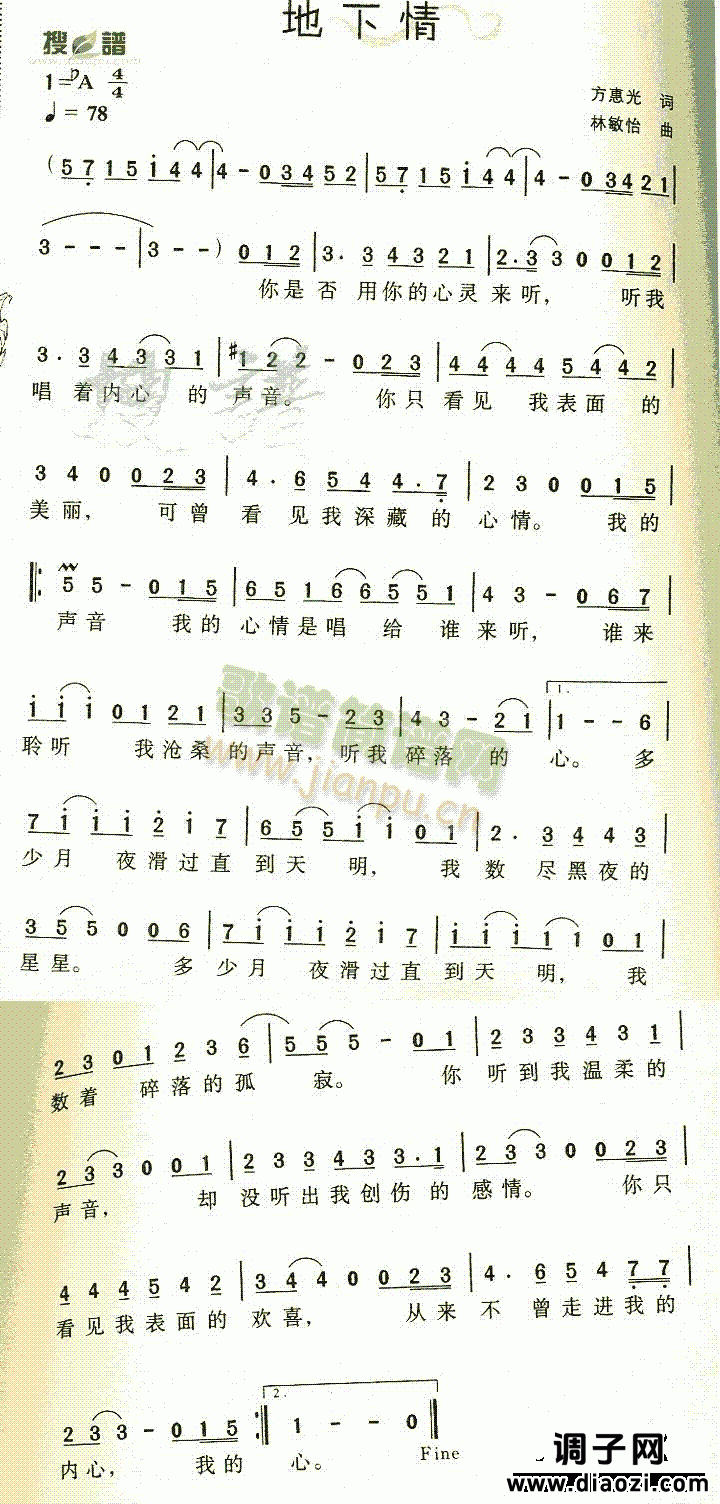 地下情
搜 谱
1=♭A 4/4
♩= 78
方惠光 词
林敏怡 曲
(5 7 1 5 i 4 4 | 4 - 0 3 4 5 2 | 5 7 1 5 i 4 4 | 4 - 0 3 4 2 1 |
3 - - - | 3 - - ) 0 1 2 | 3. 3 4 3 2 1 | 2. 3 3 0 0 1 2 |
你是 否 用你的心灵来听, 听我
3. 3 4 3 3 1 | #1 2 2 - 0 2 3 | 4 4 4 4 5 4 4 2 |
唱 着内心 的 声音。 你只 看见 我表面 的
3 4 0 0 2 3 | 4. 6 5 4 4. 7 | 2 3 0 0 1 5 |
美丽, 可曾 看 见我深藏 的 心情。 我的
5 5 - 0 1 5 | 6 5 1 6 6 5 5 1 | 4 3 - 0 6 7 |
声音 我的 心情是唱 给 谁来听, 谁来
i i i 0 1 2 1 | 3 3 5 - 2 3 | 4 3 - 2 1 | 1. 1 - - 6 |
聆听 我沧桑 的声音, 听我碎落 的 心。 多
歌谱简谱网
www.jianpu.cn
7 i i i 2 i 7 | 6 5 5 i i 0 1 | 2. 3 4 4 3 |
少月 夜滑过直到天 明, 我 数 尽黑夜的
3 5 5 0 0 6 | 7 i i i 2 i 7 | i i i i i 0 1 |
星星。 多 少月 夜滑过直 到天 明, 我
2 3 0 1 2 3 6 | 5 5 5 - 0 1 | 2 3 3 4 3 1 |
数着 碎落的孤 寂。 你 听到我温柔的
2 3 3 0 0 1 | 2 3 3 4 3 3. 1 | 2 3 3 0 0 2 3 |
声音, 却 没听出我创伤的 感情。 你只
4 4 4 5 4 2 | 3 4 4 0 0 2 3 | 4. 6 5 4 7 7 |
看见我表面的 欢喜, 从来 不 曾走进我的
2 3 3 - 0 1 5 :‖ 2. 1 - - 0 ‖
内心, 我的 心。 Fine
调子网
www.diaozi.com